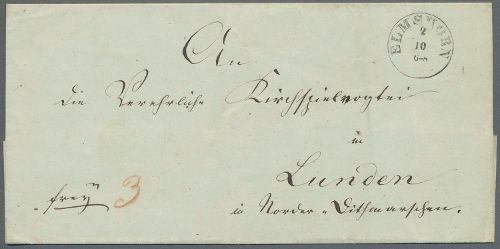 ELMSHORN
2
10
6-8
An
die Verehrliche Kirchspielvogtei
in
Lunden
in Norder-Dithmarschen.
frey 3